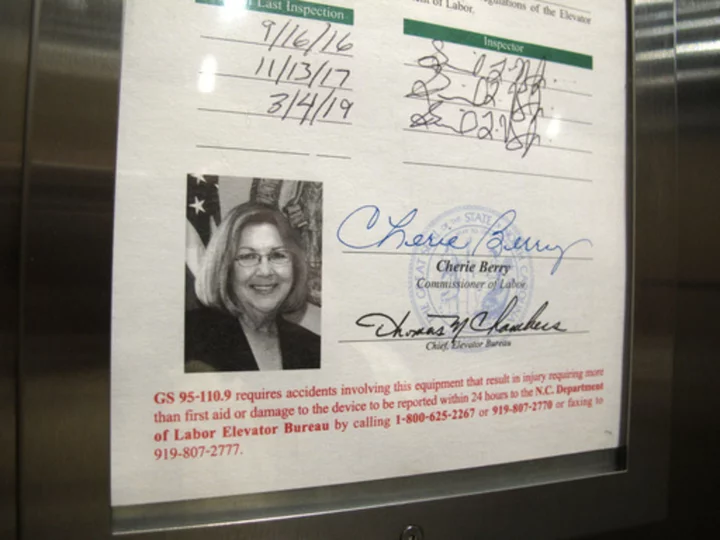 Last Inspection
of the Elevator
of Labor.
Inspector
9/16/16
11/13/17
3/4/19
Cherie Berry
Cherie Berry
Commissioner of Labor
Thomas N Chambers
Chief, Elevator Bureau
GS 95-110.9 requires accidents involving this equipment that result in injury requiring more
than first aid or damage to the device to be reported within 24 hours to the N.C. Department
of Labor Elevator Bureau by calling 1-800-625-2267 or 919-807-2770 or faxing to
919-807-2777.